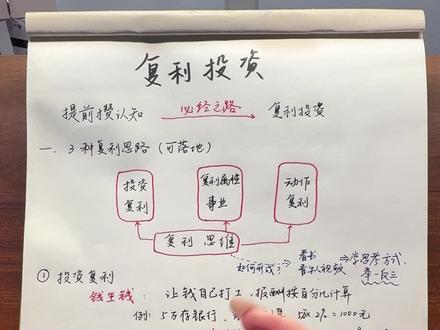 复利投资
提前攒认知 必经之路 复利投资
一、3种复利思路（可落地）
投资复利
复利属性事业
动作复利
复利思维
如何形成？ 看书 牛人视频 ⇒学思考方式，举一反三
① 投资复利
钱生钱：让钱自己打工，报酬按百分比计算
例：5万存银行， 5w×2%=1000元